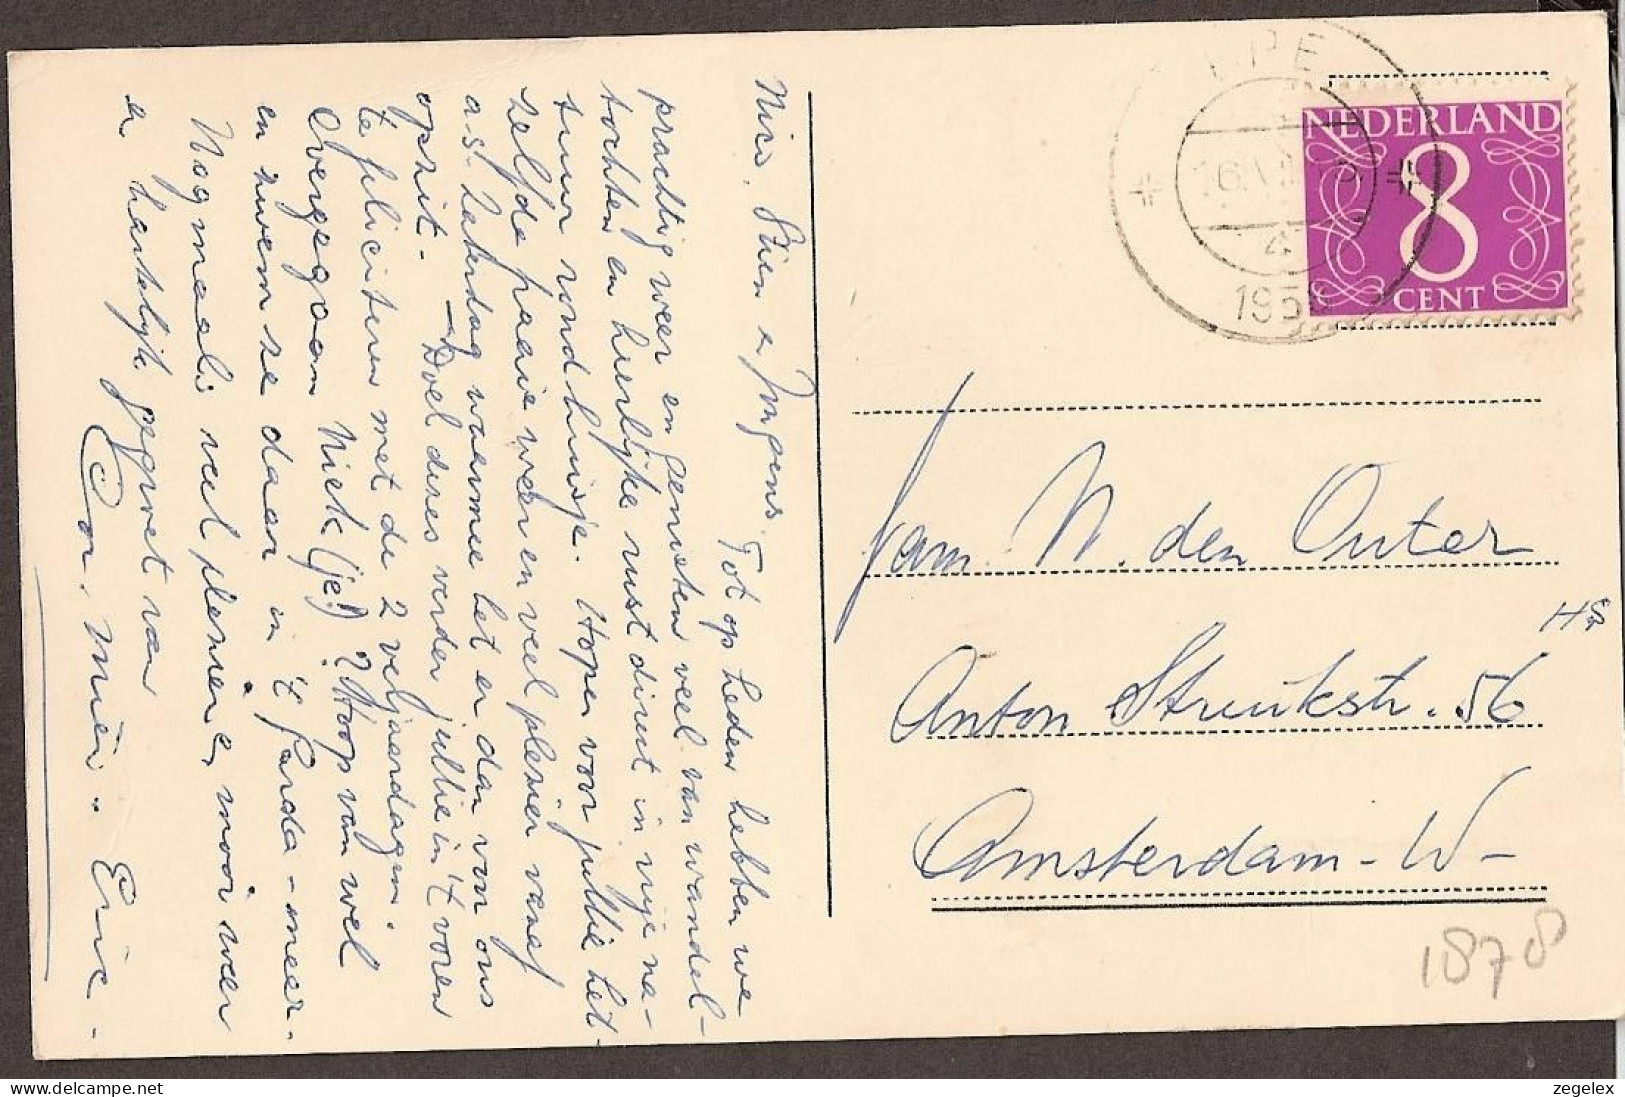 Nico, Stien & Jongens.
Tot op heden hebben we
prachtig weer en genieten veel van wandel-
tochten en heerlijke rust direct in vrije na-
tuur rond huisje. Hopen voor jullie het-
zelfde fraaie weer en veel plezier vanaf
a.s. Zaterdag waarmee het er dan voor ons
opzit. — Doel dezes verder jullie in 't voren
te feliciteren met de 2 verjaardagen.
Overgegaan Niek (je?) ? Hoop van wel
en zwem ze daar in 't -meer.
Nogmaals veel plezier, mooi weer
& hartelijk gegroet van
Cor, Mien. Eric -
EPE
4
195
NEDERLAND
8
CENT
Fam. N. den Outer
Anton Struikstr. 56 Hs
Amsterdam - W -
1878
zegelex